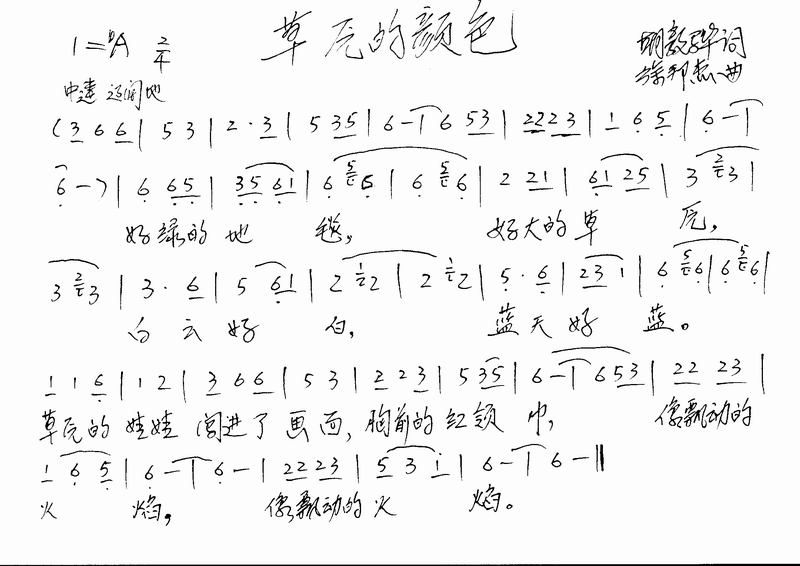 草原的颜色
1=♭A 2/4
词
徐邦杰曲
中速 辽阔地
(3 6 6 | 5 3 | 2 · 3 | 5 35 | 6 - | 6 53 | 2223 | 1 6 5 | 6 - |
6 -) | 6 65 | 35 61 | 6 56 | 6 56 | 2 21 | 61 25 | 3 23 |
好绿的地 毯, 好大的草 原,
3 23 | 3 · 6 | 5 61 | 2 12 | 2 12 | 5 · 6 | 23 1 | 6 56 | 6 56 |
白云好 白, 蓝天好 蓝。
1 1 6 | 1 2 | 3 6 6 | 5 3 | 2 2 3 | 5 35 | 6 - | 6 53 | 22 23 |
草原的娃娃 闯进了画面, 胸前的红领 巾, 像飘动的
1 6 5 | 6 - | 6 - | 2223 | 5 3 i | 6 - | 6 - ‖
火 焰, 像飘动的火 焰。